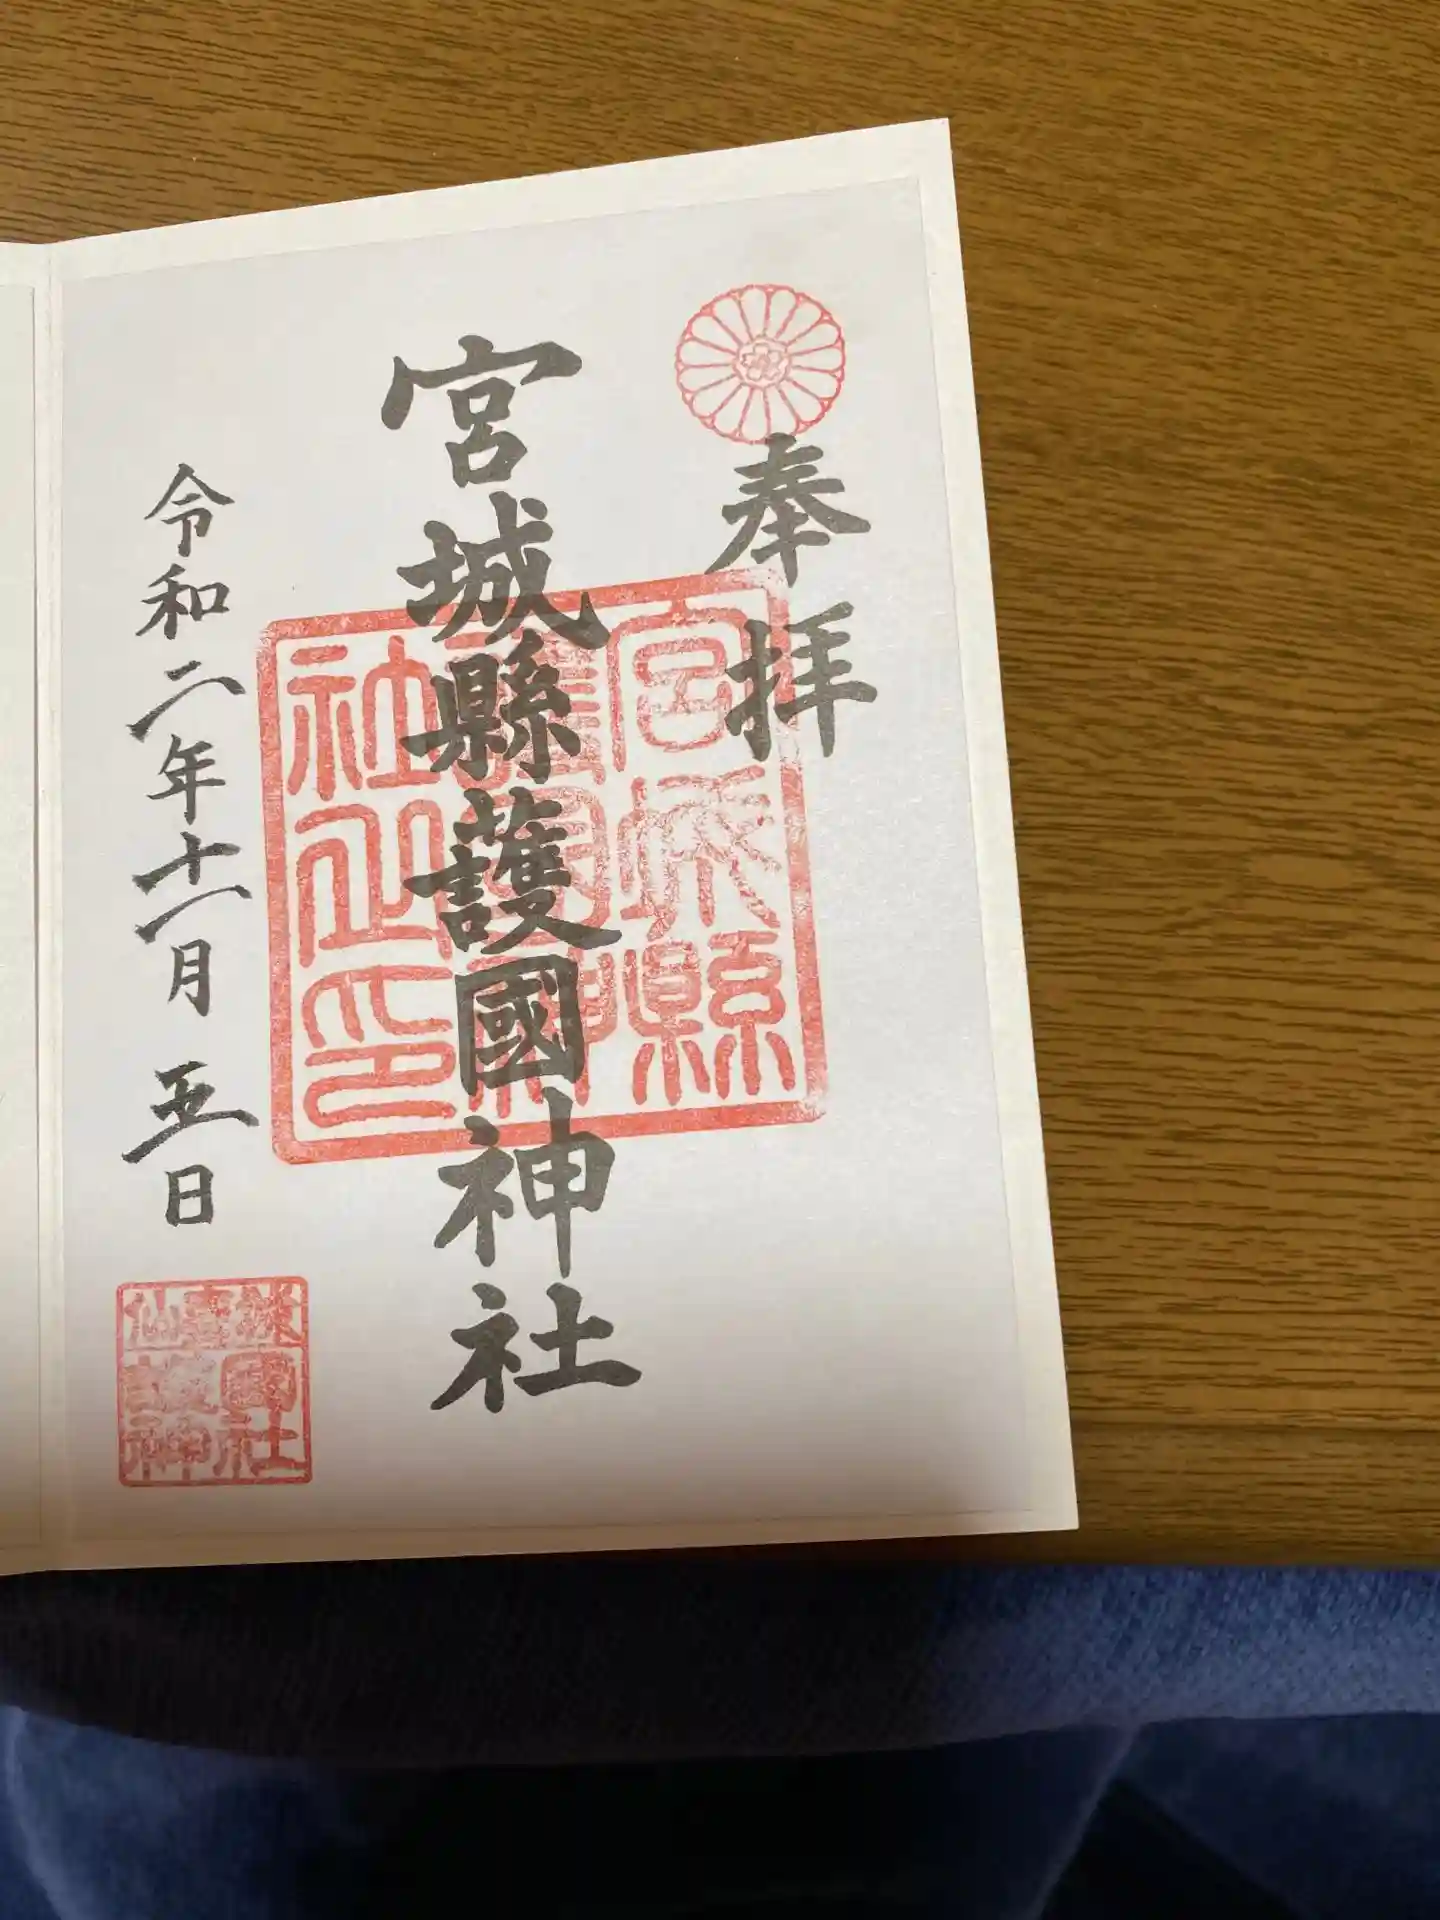 奉拝
宮城縣護國神社
宮城縣護國神社之印
令和二年十一月五日
護國神社